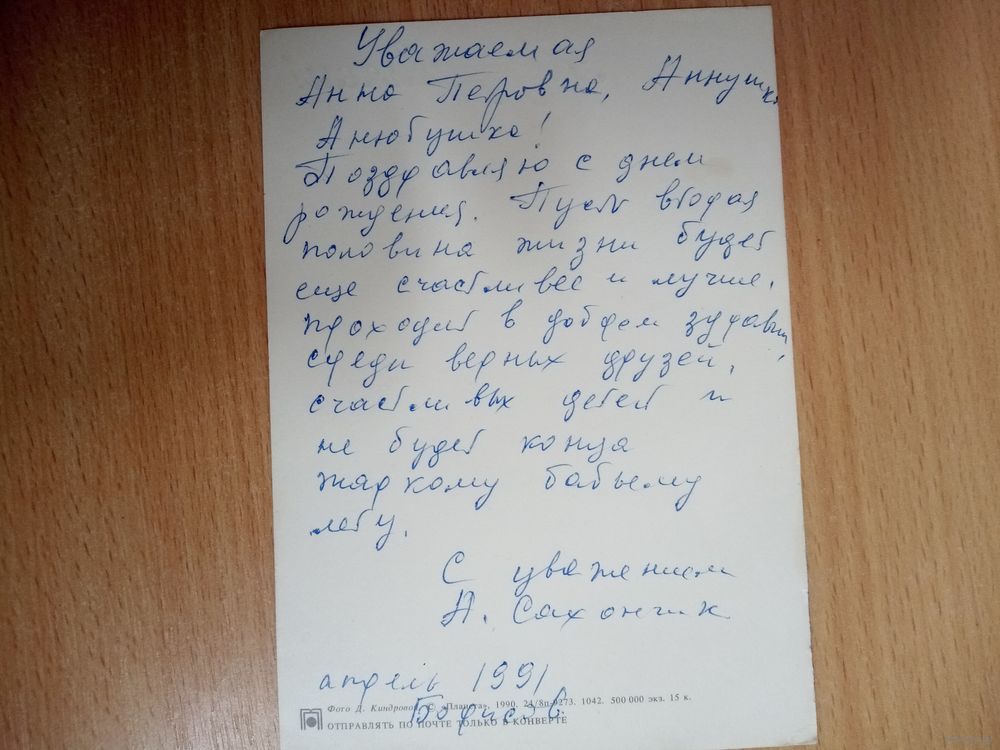 Уважаемая
Анна Петровна, Аннушка
Анюбушка!
Поздравляю с днем
рождения. Пусть вторая
половина жизни будет
еще счастливее и лучше,
проходит в добром здравии,
среди верных друзей,
счастливых детей и
не будет конца
жаркому бабьему
лету.
С уважением
А. Сахончик
апрель 1991
Борисов
Фото Д. Киндровой. © «Планета», 1990. 24/8п-0273. 1042. 500 000 экз. 15 к.
ОТПРАВЛЯТЬ ПО ПОЧТЕ ТОЛЬКО В КОНВЕРТЕ